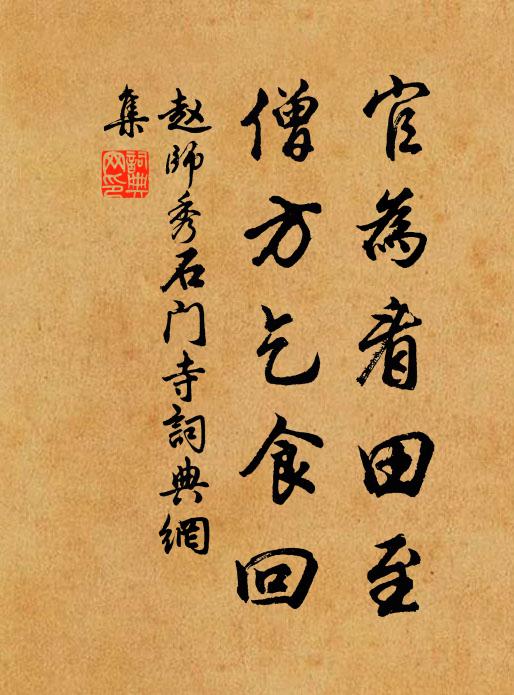 官為看田至
僧方乞食回
赵師秀石门寺詞典網
集
詞典
网印